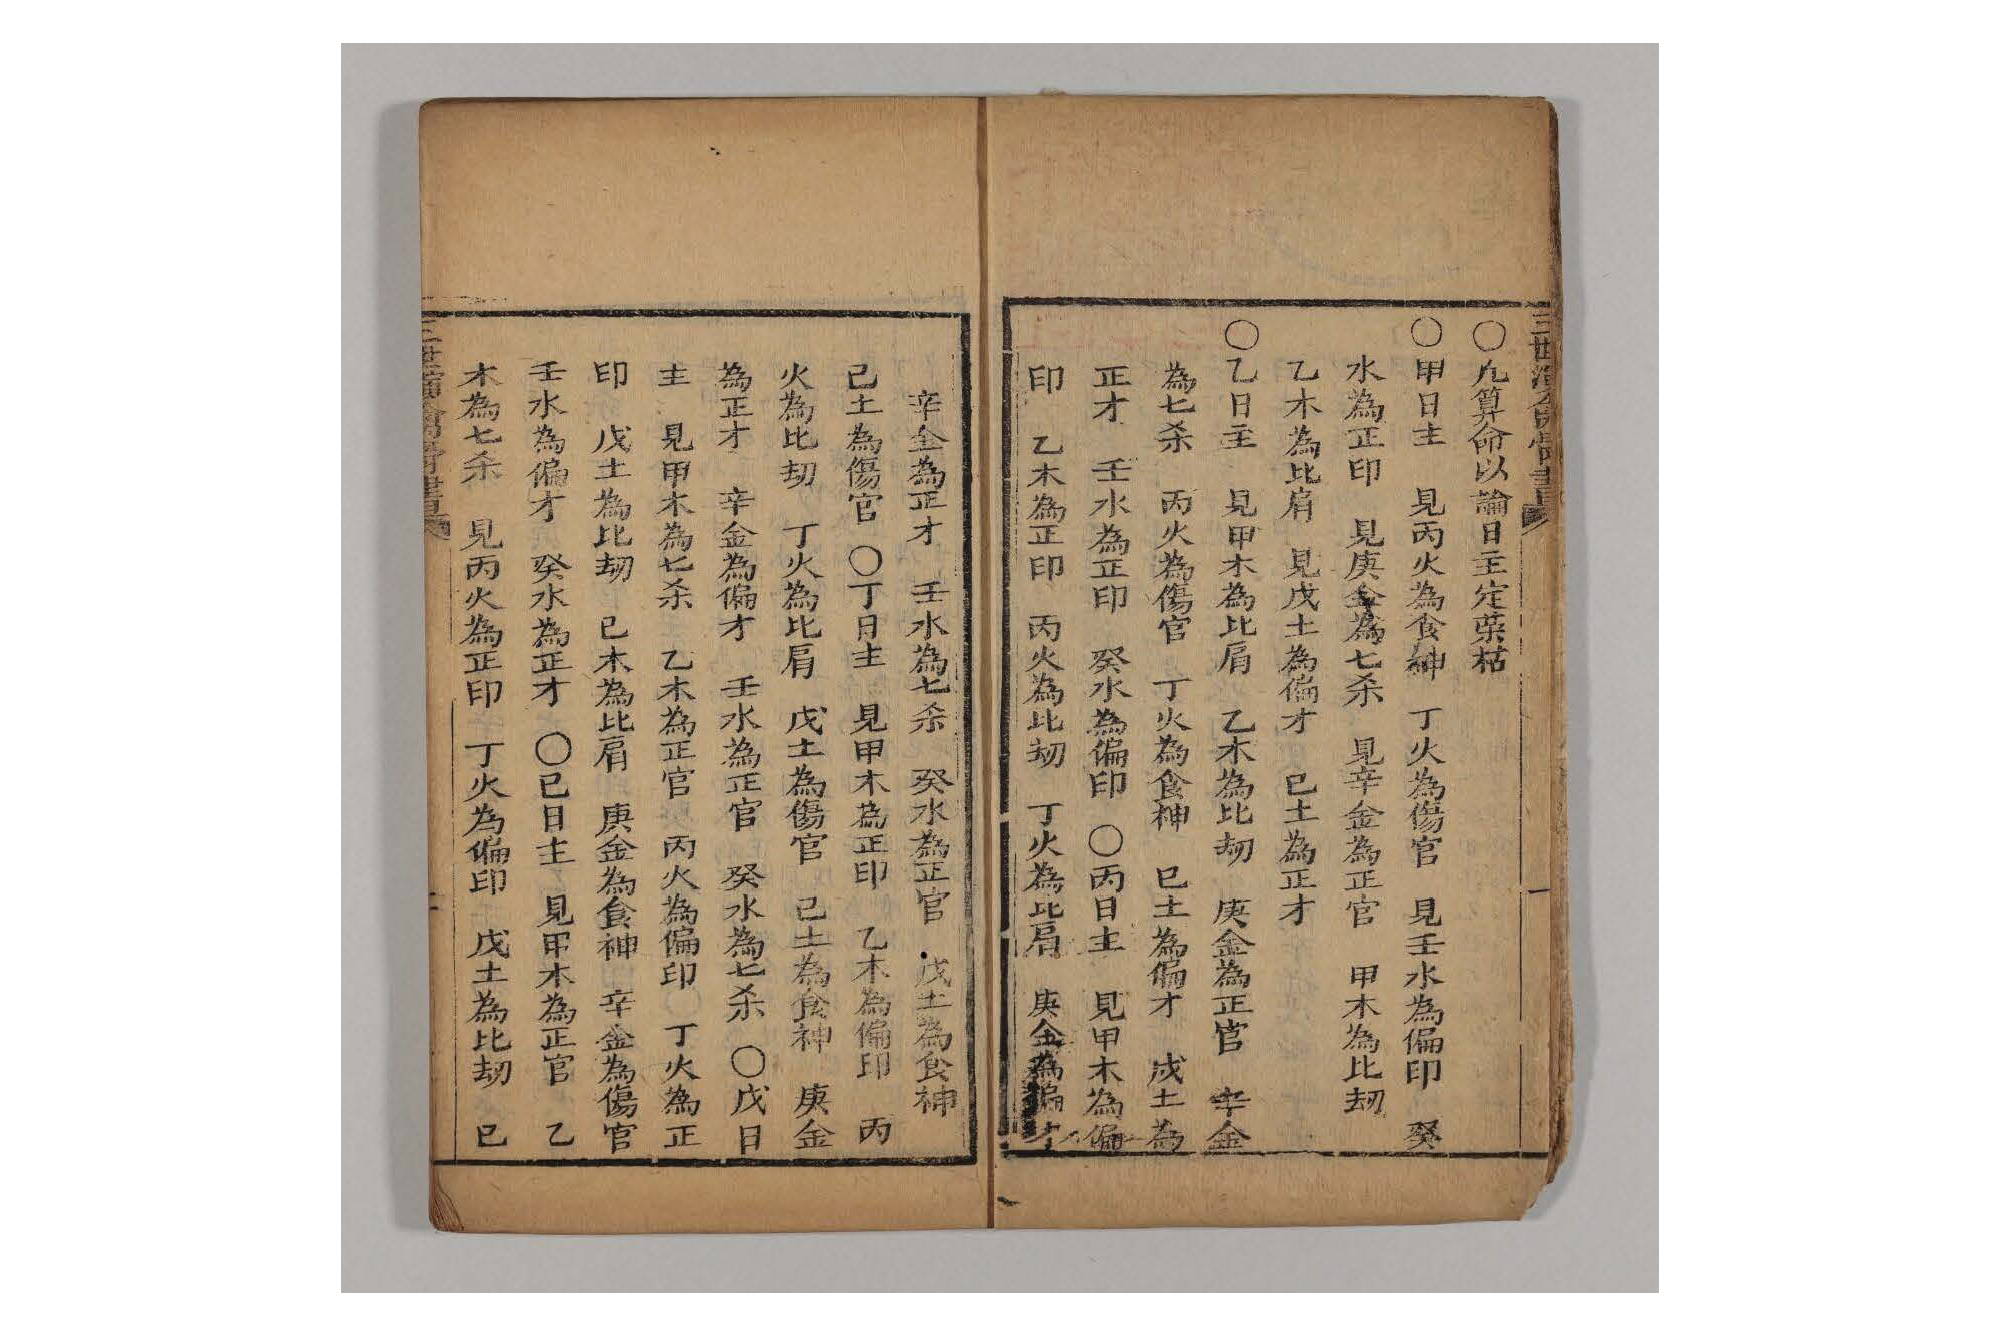 〇凡算命以論日主定荣枯
〇甲日主　見丙火為食神　丁火為傷官　見壬水為偏印　癸
水為正印　見庚金為七杀　見辛金為正官　甲木為比刼
乙木為比肩　見戊土為偏才　巳土為正才
〇乙日主　見甲木為比肩　乙木為比刼　庚金為正官　辛金
為七杀　丙火為傷官　丁火為食神　巳土為偏才　戍土為
正才　壬水為正印　癸水為偏印　〇丙日主　見甲木為偏
印　乙木為正印　丙火為比刼　丁火為比肩　庚金為偏才
辛金為正才　壬水為七杀　癸水為正官　戊土為食神
己土為傷官　〇丁日主　見甲木為正印　乙木為偏印　丙
火為比刼　丁火為比肩　戊土為傷官　己土為食神　庚金
為正才　辛金為偏才　壬水為正官　癸水為七杀　〇戊日
主　見甲木為七杀　乙木為正官　丙火為偏印　丁火為正
印　戊土為比刼　己木為比肩　庚金為食神　辛金為傷官
壬水為偏才　癸水為正才　〇巳日主　見甲木為正官　乙
木為七杀　見丙火為正印　丁火為偏印　戊土為比刼　巳